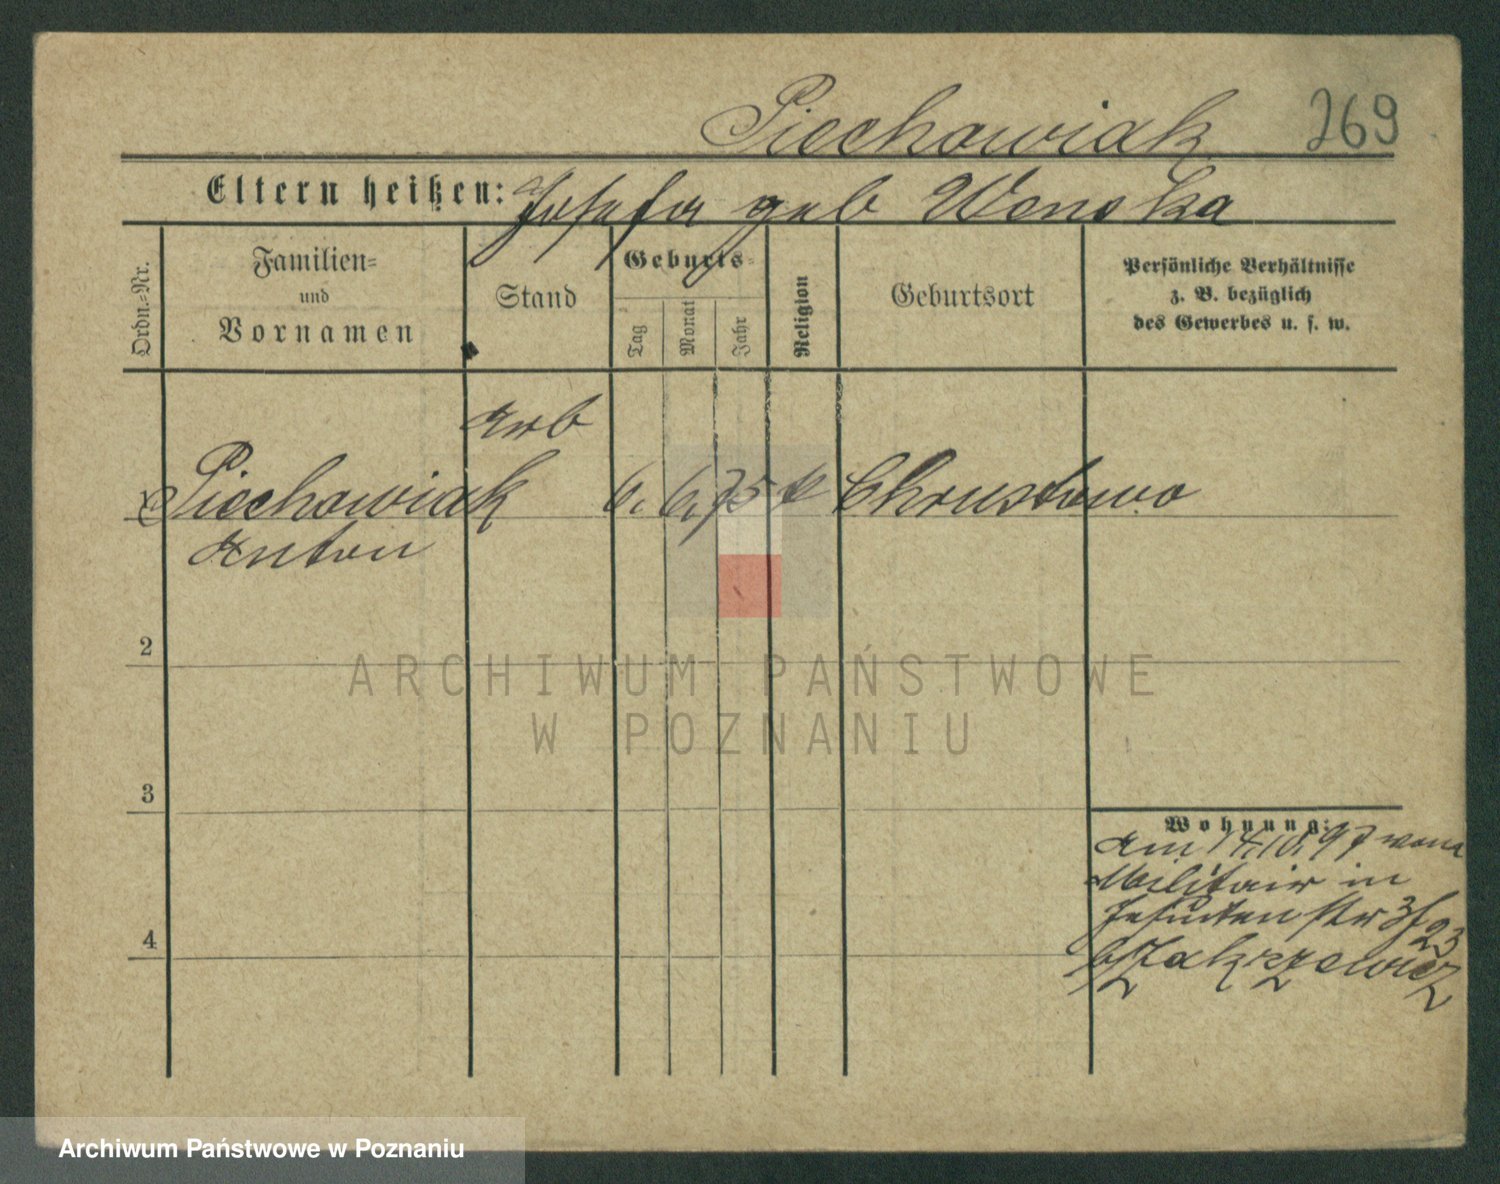 Piechowiak 269
Eltern heißen: Josefa geb Wenska
Ordn.=Nr.
Familien=
und
Vornamen
Stand
Geburts=
Tag
Monat
Jahr
Religion
Geburtsort
Persönliche Verhältnisse
z. B. bezüglich
des Gewerbes u. s. w.
Arb
1 Piechowiak 6. 6. 75 k Chrustowo
Anton
2
3
4
Wohnung:
Am 14.10.97 vom
Militair in
Jesuitenstr
b/ Zakrzewicz
ARCHIWUM PAŃSTWOWE
W POZNANIU
Archiwum Państwowe w Poznaniu